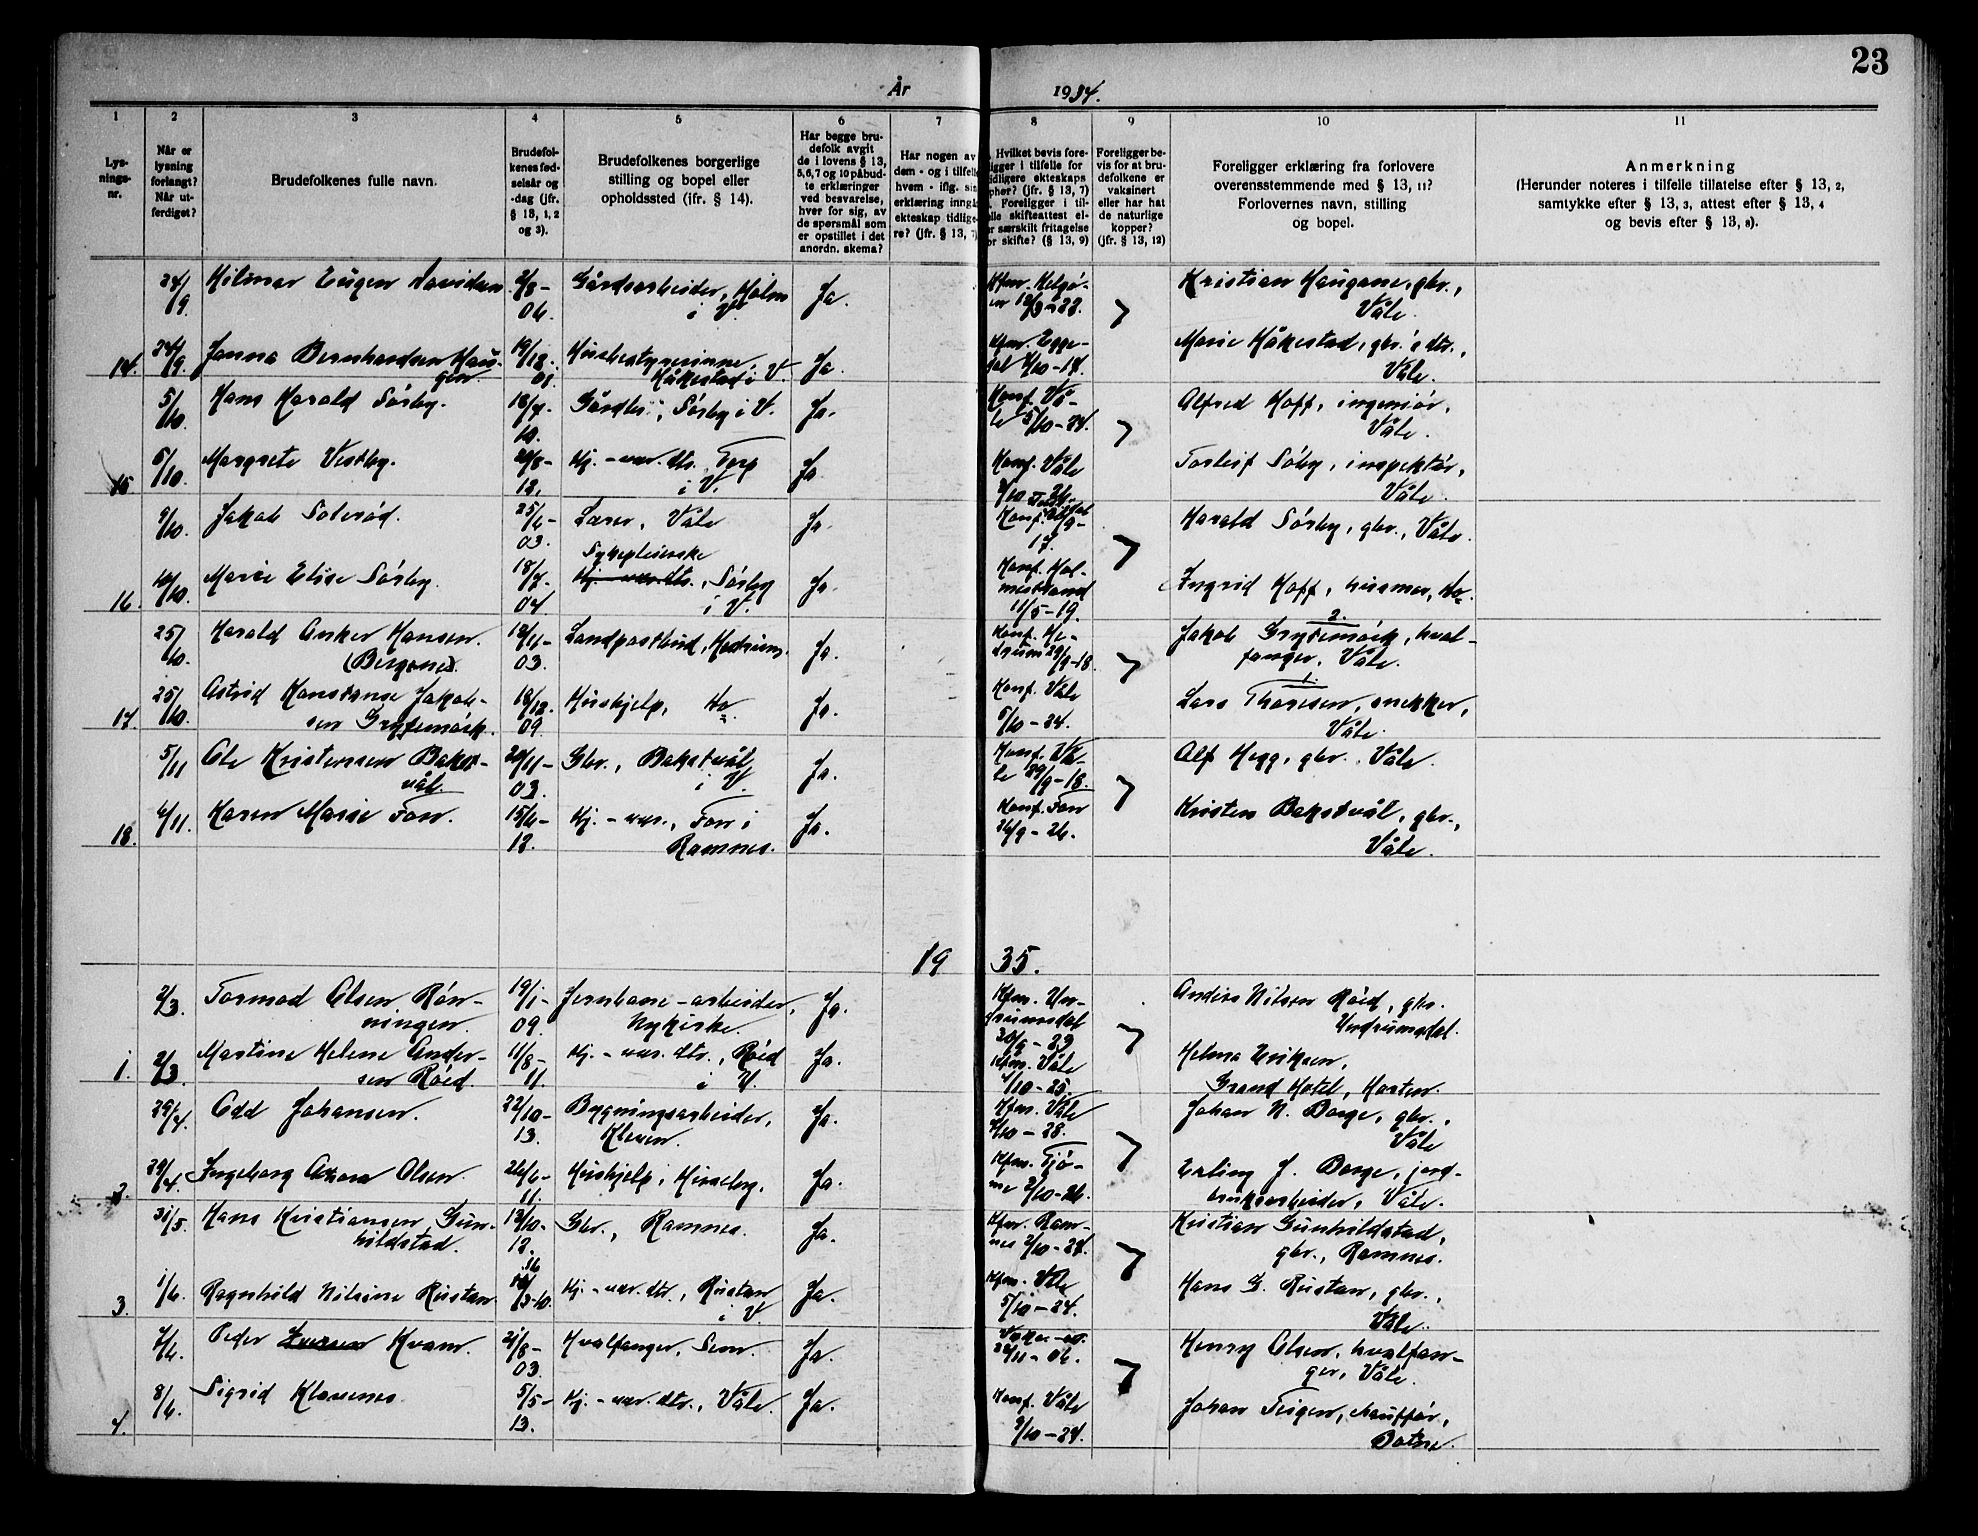 23
År 1934.
1 2 3 4 5 6 7 8 9 10 11
Lysningsnr.
Når er lysning forlangt? Når utferdiget?
Brudefolkenes fulle navn.
Brudefolkenes fødselsår og -dag (jfr. § 13, 1, 2 og 3).
Brudefolkenes borgerlige stilling og bopel eller opholdssted (ifr. § 14).
Har begge brudefolk avgit de i lovens § 13, 5, 6, 7 og 10 påbudte erklæringer ved besvarelse, hver for sig, av de spørsmål som er opstillet i det anordn. skema?
Har nogen av dem - og i tilfelle hvem - iflg. sin erklæring inngå ekteskap tidligere? (jfr. § 13, 7)
Hvilket bevis foreligger i tilfelle for tidligere ekteskaps ophør? (jfr. § 13, 7) Foreligger i tilfelle skifteattest eller særskilt fritagelse for skifte? (§ 13, 9)
Foreligger bevis for at brudefolkene er vaksinert eller har hat de naturlige kopper? (jfr. § 13, 12)
Foreligger erklæring fra forlovere overensstemmende med § 13, 11? Forlovernes navn, stilling og bopel.
Anmerkning
(Herunder noteres i tilfelle tillatelse efter § 13, 2, samtykke efter § 13, 3, attest efter § 13, 4 og bevis efter § 13, 8).
24/9 Hilmar Eugen Davidsen 2/8-06. Gårdsarbeider, Holm i V. Ja. Kristian Haugane, gbr., Våle.
14. 24/9. Janna Bernhardsen Haugen 19/12.01 Husbestyrerinne, Håkestad i V. Ja. Marie Håkestad, gbr.'s dtr., Våle.
5/10 Hans Harald Sørby. 18/7.10. Sørby i V. Ja. Konf. Våle 5/10-24. Alfred Hoff, ingeniør, Våle.
15 5/10. Margrete Vestby. Gj.-var. dtr. Torp i V. Ja Konf. Våle Torleif Søby, inspektør, Våle.
9/10. Jakob Solerød. 25/6-03. Lærer, Våle Ja. Harald Sørby, gbr., Våle.
16. 10/10. Marie Elise Sørby. 18/7-04. Sykepleierske, Sørby i V. Ja. Konf. Holmestrand 11/5-19. Ingrid Hoff, husmor, do.
25/10. Harald Anker Hansen (Bergane). 12/11-03. Landpostbud, Hedrum. Ja. Konf. Hedrum 29/9-18. 2. Jakob Grytemørk, hvalfanger, Våle.
17. 25/10. Astrid Konstanse Jakobsen Grytemørk. 18/12.09. Hushjelp, do. Ja. Konf. Våle 5/10-24. 1. Lars Thoresen, snekker, Våle.
5/11 Ole Kristensen Bakstvål. 20/11-03. Gbr., Bakstvål i V. Ja. Konf. Våle 29/9-18. Alf Hegg, gbr. Våle.
18. 6/11. Karen Marie Fon. 15/6-12. Gj.-var., Fon i Ramnes. Ja. Konf. Fon 26/9-26. Kristen Bakstvål, gbr., Våle.
19 35.
2/3. Tormod Olsen Rønningen. 19/1-09. Jernbane-arbeider, Nykirke. Ja. Kfm. Undrumsdal Anders Nilsen Røed, gbr. Undrumsdal.
1. 2/3. Martine Helene Andersen Røed. 11/8-11. Gj.-var. dtr., Røed i U. Ja. Kfm. Våle 4/10-25. Helma Eriksen, Grand Hotel, Horten.
29/4. Odd Johansen. 22/10-13. Bygningsarbeider, Kleven. Ja. Kfm. Våle Johan N. Borge, gbr., Våle
2. 29/4. Ingeborg Olsen. 26/6-11. Hushjelp, Kirkeby. Ja. Kfm. Tjøme Erling J. Borge, jordbruksarbeider, Våle.
31/5. Hans Kristiansen Gunhildstad. 13/10-12. Gbr., Ramnes. Ja. Kfm. Ramnes 2/10-27. Kristian Gunhildstad, gbr., Ramnes.
3. 1/6. Ragnhild Nilsine Rustan. Gj.-var. dtr., Rustan i V. Ja. Kfm. Våle 5/10-24. Hans G. Rustan, gbr., Våle.
7/6. Peder Kvam. 21/8-03. Hvalfanger, Sem. Ja. 22/11-06. Henry Olsen, hvalfanger, Våle.
4. 8/6. Sigrid Klavenes. 5/5-13. Gj.-var. dtr., Våle. Ja. Konf. Våle 9/10-27. Johan Teigen, chauffør, Botne.